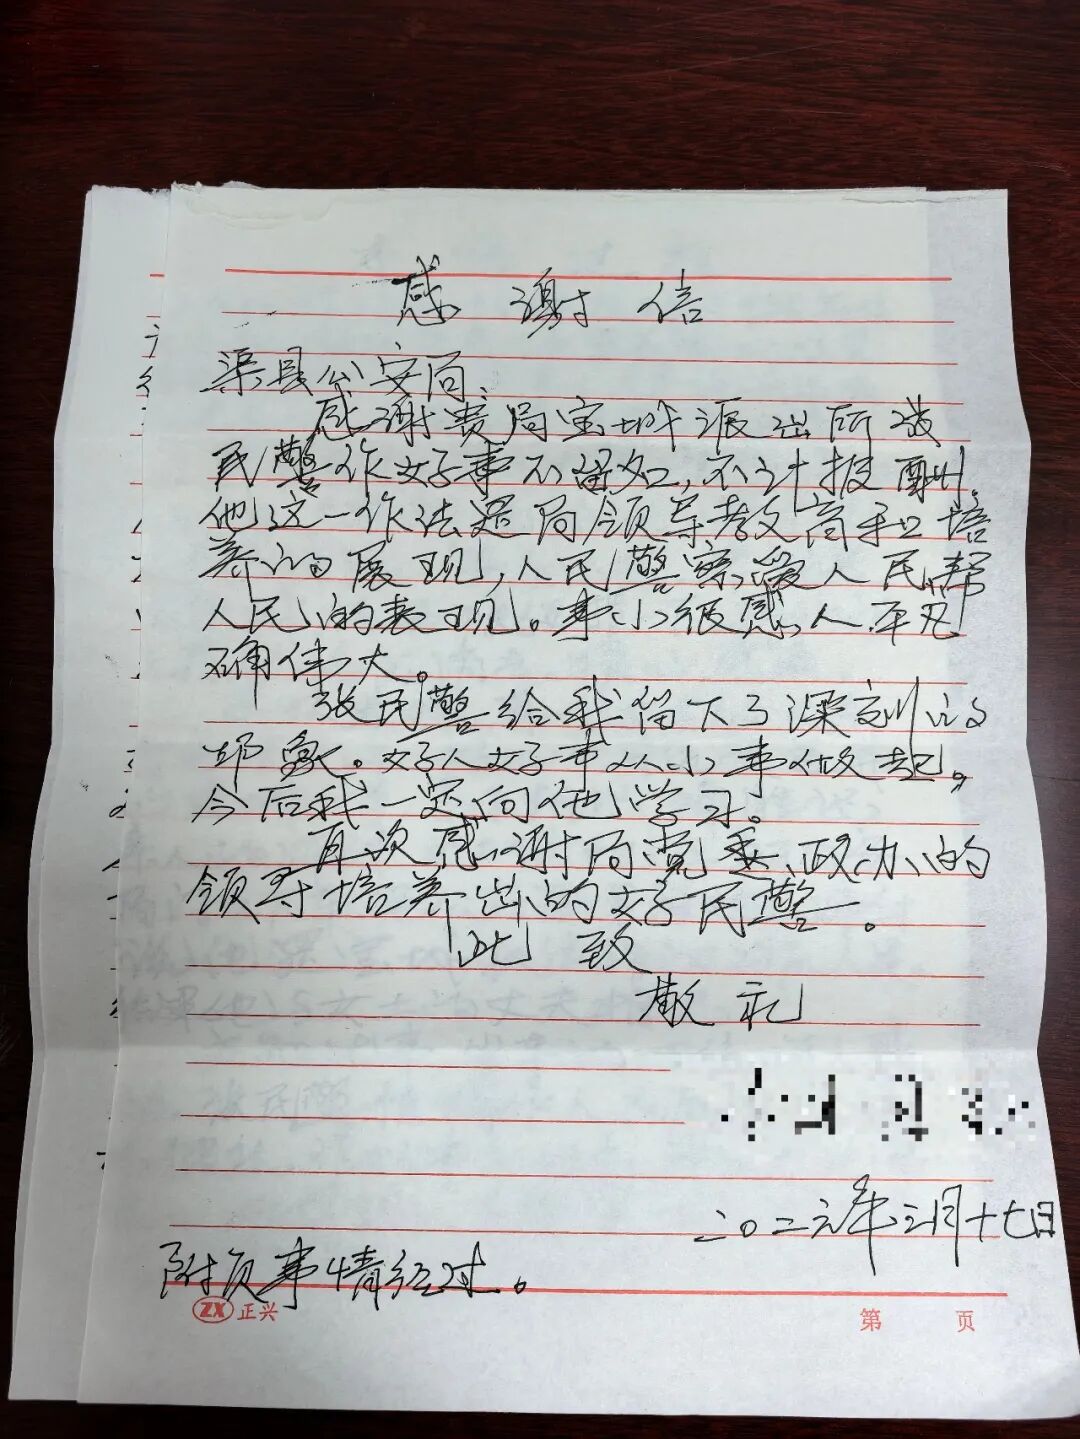 感谢信
渠县公安局、
感谢贵局宝城派出所张
民警作好事不留名,不计报酬。
他这一作法是局领导教育和培
养的展现,人民警察爱人民,帮
人民的表现。事小很感人,平凡
确伟大。
张民警给我留下了深刻的
印象。好人好事从小事做起,
今后我一定向他学习。
再次感谢局党委、政办的
领导培养出的好民警。
此致
敬礼
二〇二六年三月十七日
附页事情经过。
ZX 正兴
第 页